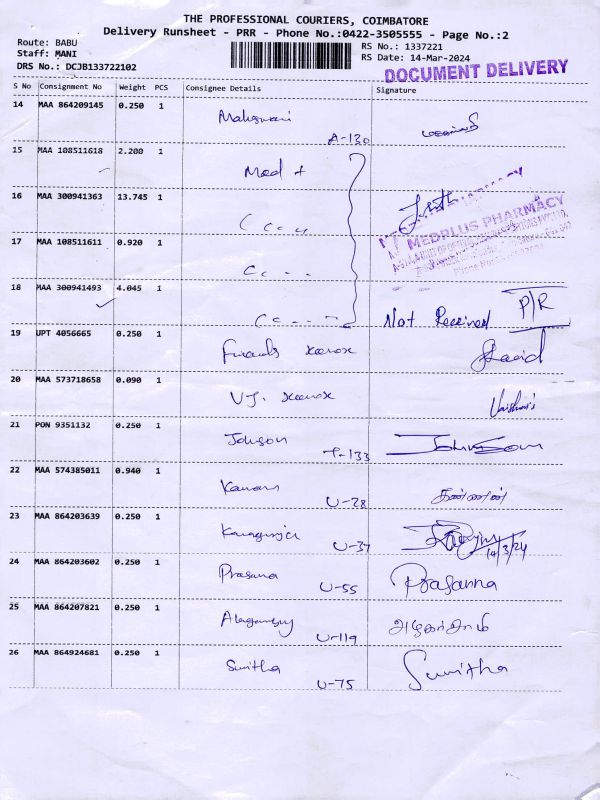 THE PROFESSIONAL COURIERS, COIMBATORE
Delivery Runsheet - PRR - Phone No.:0422-3505555 - Page No.:2
Route: BABU
RS No.: 1337221
Staff: MANI
RS Date: 14-Mar-2024
DRS No.: DCJB133722102
DOCUMENT DELIVERY
S No Consignment No Weight PCS Consignee Details Signature
14 MAA 864209145 0.250 1 A-130
15 MAA 108511618 2.200 1 Med +
16 MAA 300941363 13.745 1
MEDPLUS PHARMACY
17 MAA 108511611 0.920 1
18 MAA 300941493 4.045 1 Not Received P/R
19 UPT 4056665 0.250 1 Friends xerox
20 MAA 573718658 0.090 1 V.J. xerox
21 PON 9351132 0.250 1 Johnson T-133 Johnson
22 MAA 574385011 0.940 1 Kannan U-28 கண்ணன்
23 MAA 864203639 0.250 1 U-37 14/3/24
24 MAA 864203602 0.250 1 Prasana U-55 Prasanna
25 MAA 864207821 0.250 1 U-119
26 MAA 864924681 0.250 1 Sunitha U-75 Sunitha